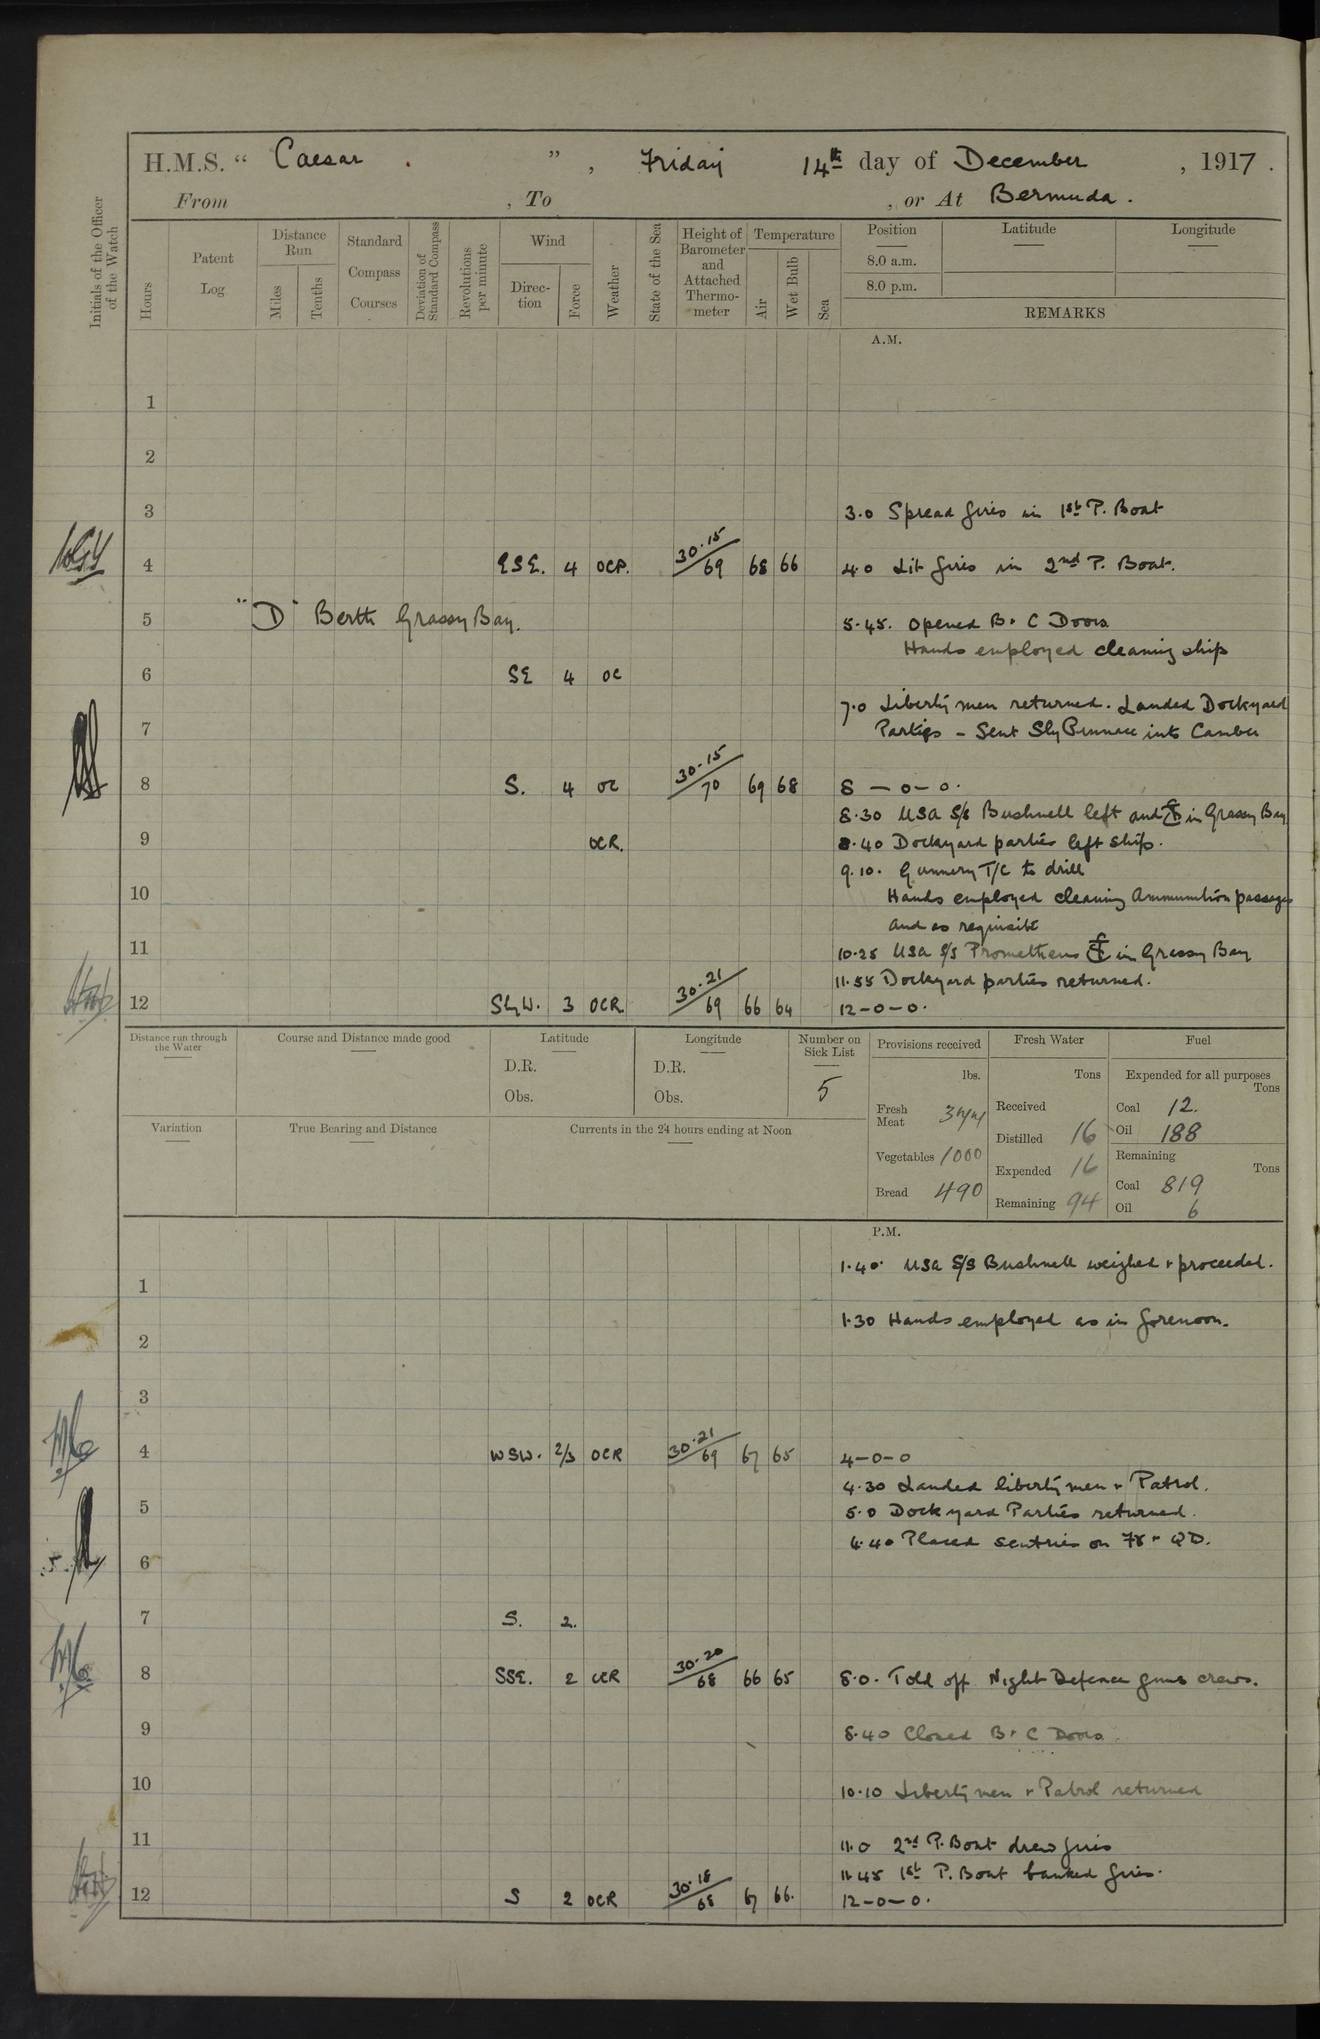 H.M.S. “ Caesar . ” , Friday 14th day of December , 1917 .
From , To , or At Bermuda .
Initials of the Officer of the Watch
Hours
Patent Log
Distance Run
Miles
Tenths
Standard Compass Courses
Deviation of Standard Compass
Revolutions per minute
Wind
Direction
Force
Weather
State of the Sea
Height of Barometer and Attached Thermometer
Temperature
Air
Wet Bulb
Sea
Position
8.0 a.m.
8.0 p.m.
Latitude
Longitude
REMARKS
A.M.
1
2
3 3.0 Spread fires in 1st P. Boat
4 ESE. 4 OCP. 30.15/69 68 66 4.0 Lit fires in 2nd P. Boat.
5 "D" Berth Grassy Bay. 5.45. Opened B. & C Doors
Hands employed cleaning ship
6 SE 4 OC
7.0 Liberty men returned. Landed Dockyard
7 Parties - Sent Sly Pinnace into Camber
8 S. 4 OC 30.15/70 69 68 8 - 0 - 0.
8.30 USA S/S Bushnell left and ⚓ in Grassy Bay
9 OCR. 8.40 Dockyard parties left ship.
9.10. Gunnery T/C to drill
10 Hands employed cleaning Ammunition passages
and as requisite
11 10.25 USA S/S Prometheus ⚓ in Grassy Bay
11.55 Dockyard parties returned.
12 SbyW. 3 OCR 30.21/69 66 64 12-0-0.
Distance run through the Water
Course and Distance made good
Latitude
D.R.
Obs.
Longitude
D.R.
Obs.
Number on Sick List
5
Provisions received
lbs.
Fresh Meat
Vegetables 1000
Bread 490
Fresh Water
Tons
Received
Distilled 16
Expended 16
Remaining 94
Fuel
Expended for all purposes
Tons
Coal 12.
Oil 188
Remaining
Tons
Coal 819
Oil 6
Variation
True Bearing and Distance
Currents in the 24 hours ending at Noon
P.M.
1.40. USA S/S Bushnell weighed & proceeded.
1
1.30 Hands employed as in forenoon.
2
3
4 WSW. 2/3 OCR 30.21/69 67 65 4-0-0
4.30 Landed liberty men & Patrol.
5 5.0 Dockyard Parties returned.
4.40 Placed sentries on 78 & QD.
6
7 S. 2.
8 SSE. 2 OCR 30.20/68 66 65 8.0. Told off Night Defence guns crews.
9 8.40 Closed B & C Doors.
10 10.10 Liberty men & Patrol returned
11 11.0 2nd P. Boat drew fires
11.45 1st P. Boat banked fires.
12 S 2 OCR 30.18/68 67 66. 12-0-0.